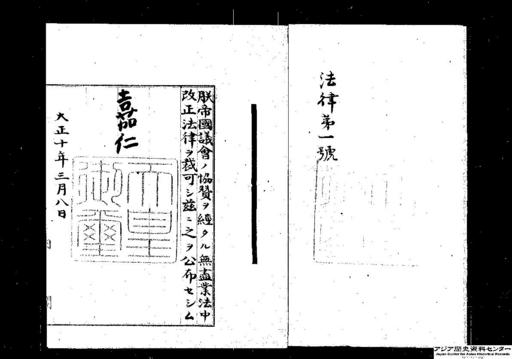 法律第一號
朕帝國議會ノ協賛ヲ經タル無盡業法中
改正法律ヲ裁可シ茲ニ之ヲ公布セシム
嘉仁
天皇
御璽
大正十年三月八日
アジア歴史資料センター
Japan Center for Asian Historical Records